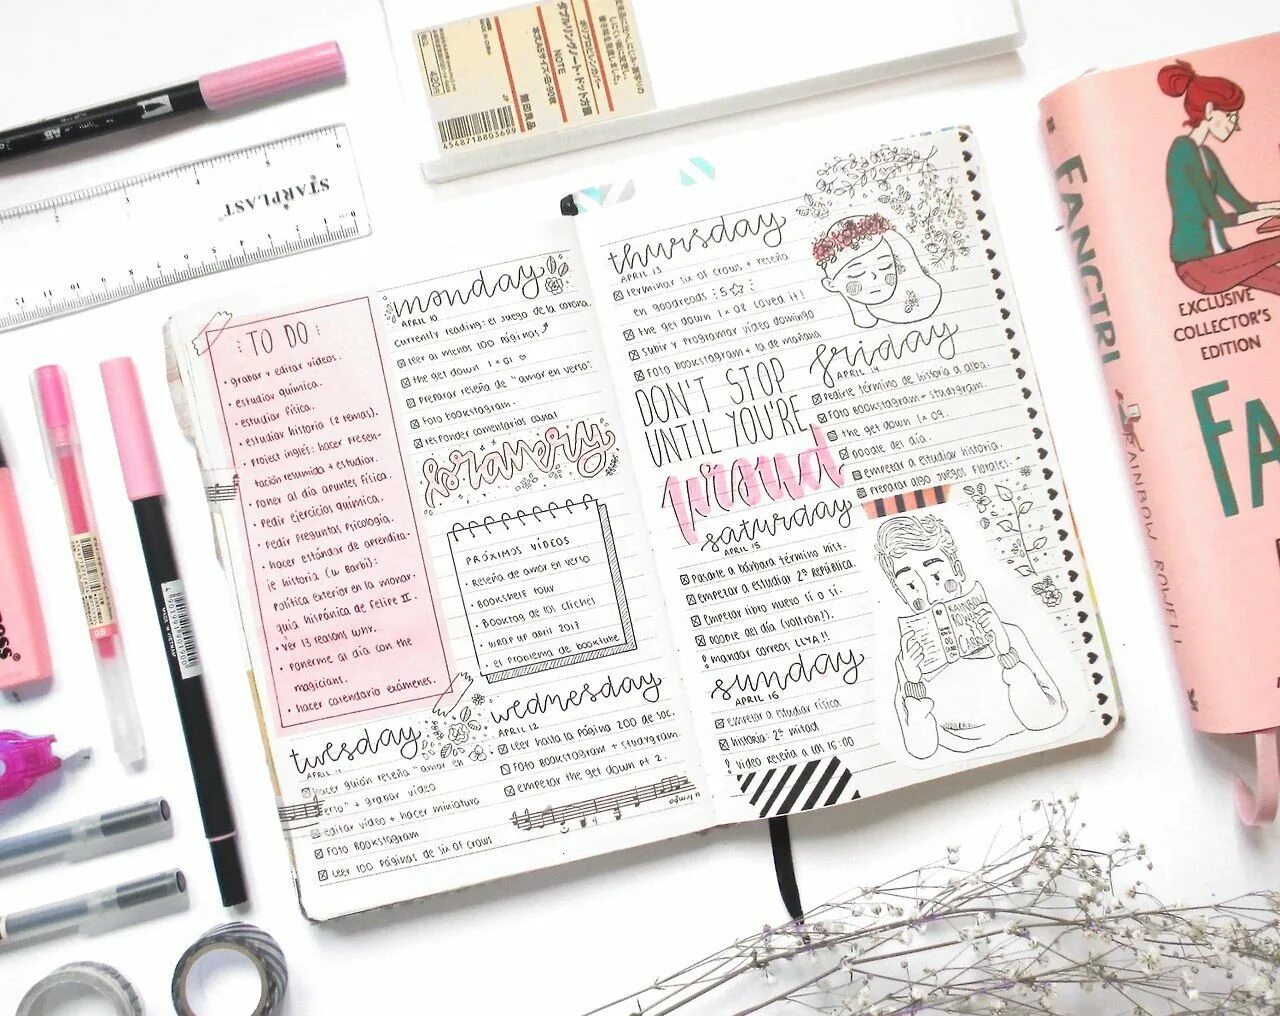 STARPLAST
NOTE
無印良品
4548718803699
TO DO
• grabar y editar vídeos.
• estudiar química.
• estudiar física.
• estudiar historia (2 temas).
• project inglés: hacer presen-
tación resumido + estudiar.
• poner al día apuntes física.
• pedir ejercicios química.
• pedir preguntas psicología.
• hacer estándar de aprendiza-
je historia (w Barbi):
política exterior en la monar-
quía hispánica de Felipe II.
• ver 13 reasons why.
• ponerme al día con the
magicians.
• hacer calendario exámenes.
monday
APRIL 10
currently reading: el juego de la corona.
leer al menos 100 páginas
the get down 1×01
preparar reseña de "amor en verso".
foto bookstagram.
responder comentarios canal
bravery
PRÓXIMOS VÍDEOS
• Reseña de amor en verso
• Bookshelf tour
• Booktag de los clichés
• wrap up abril 2017
• el problema de booktube
tuesday
APRIL 11
hacer guión reseña "amor en
verso" + grabar vídeo
editar vídeo + hacer miniatura
foto bookstagram
leer 100 páginas de six of crows
wednesday
APRIL 12
leer hasta la página 200 de soc.
foto bookstagram + studygram.
empezar the get down pt 2.
thursday
APRIL 13
terminar six of crows + reseña
en goodreads : 5☆ :
the get down 1×08 loved it!
subir y programar vídeo domingo
foto bookstagram + la de mañana
DON'T STOP
UNTIL YOU'RE
proud
friday
APRIL 14
pedirle término de historia a alba.
foto bookstagram + studygram.
the get down 1× 09.
doodle del día.
empezar a estudiar historia.
preparar algo juegos florales.
saturday
APRIL 15
pasarle a bárbara término hist.
empezar a estudiar 2ª república.
empezar libro nuevo sí o sí.
doodle del día
mandar correos LLYA!!
sunday
APRIL 16
empezar a estudiar física
historia: 2ª mitad
vídeo reseña a las 16:00
RAINBOW
ROWELL
FANGIRL
RAINBOW ROWELL
EXCLUSIVE
COLLECTOR'S
EDITION
FA